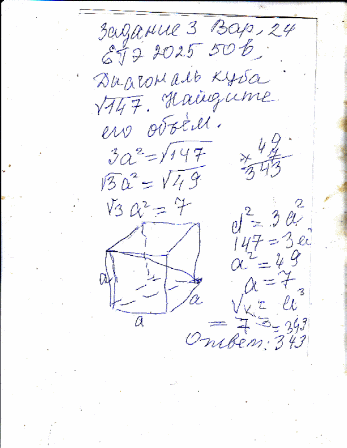 Задание 3 Вар. 24
ЕГЭ 2025 50 в.
Диагональ куба
√147. Найдите
его объём.
3a² = √147
√3a² = √49
√3 a² = 7
49
× 7
343
d² = 3a²
147 = 3a²
a² = 49
a = 7
Vк = a³
= 7³ = 343
Ответ: 343
a
a
a